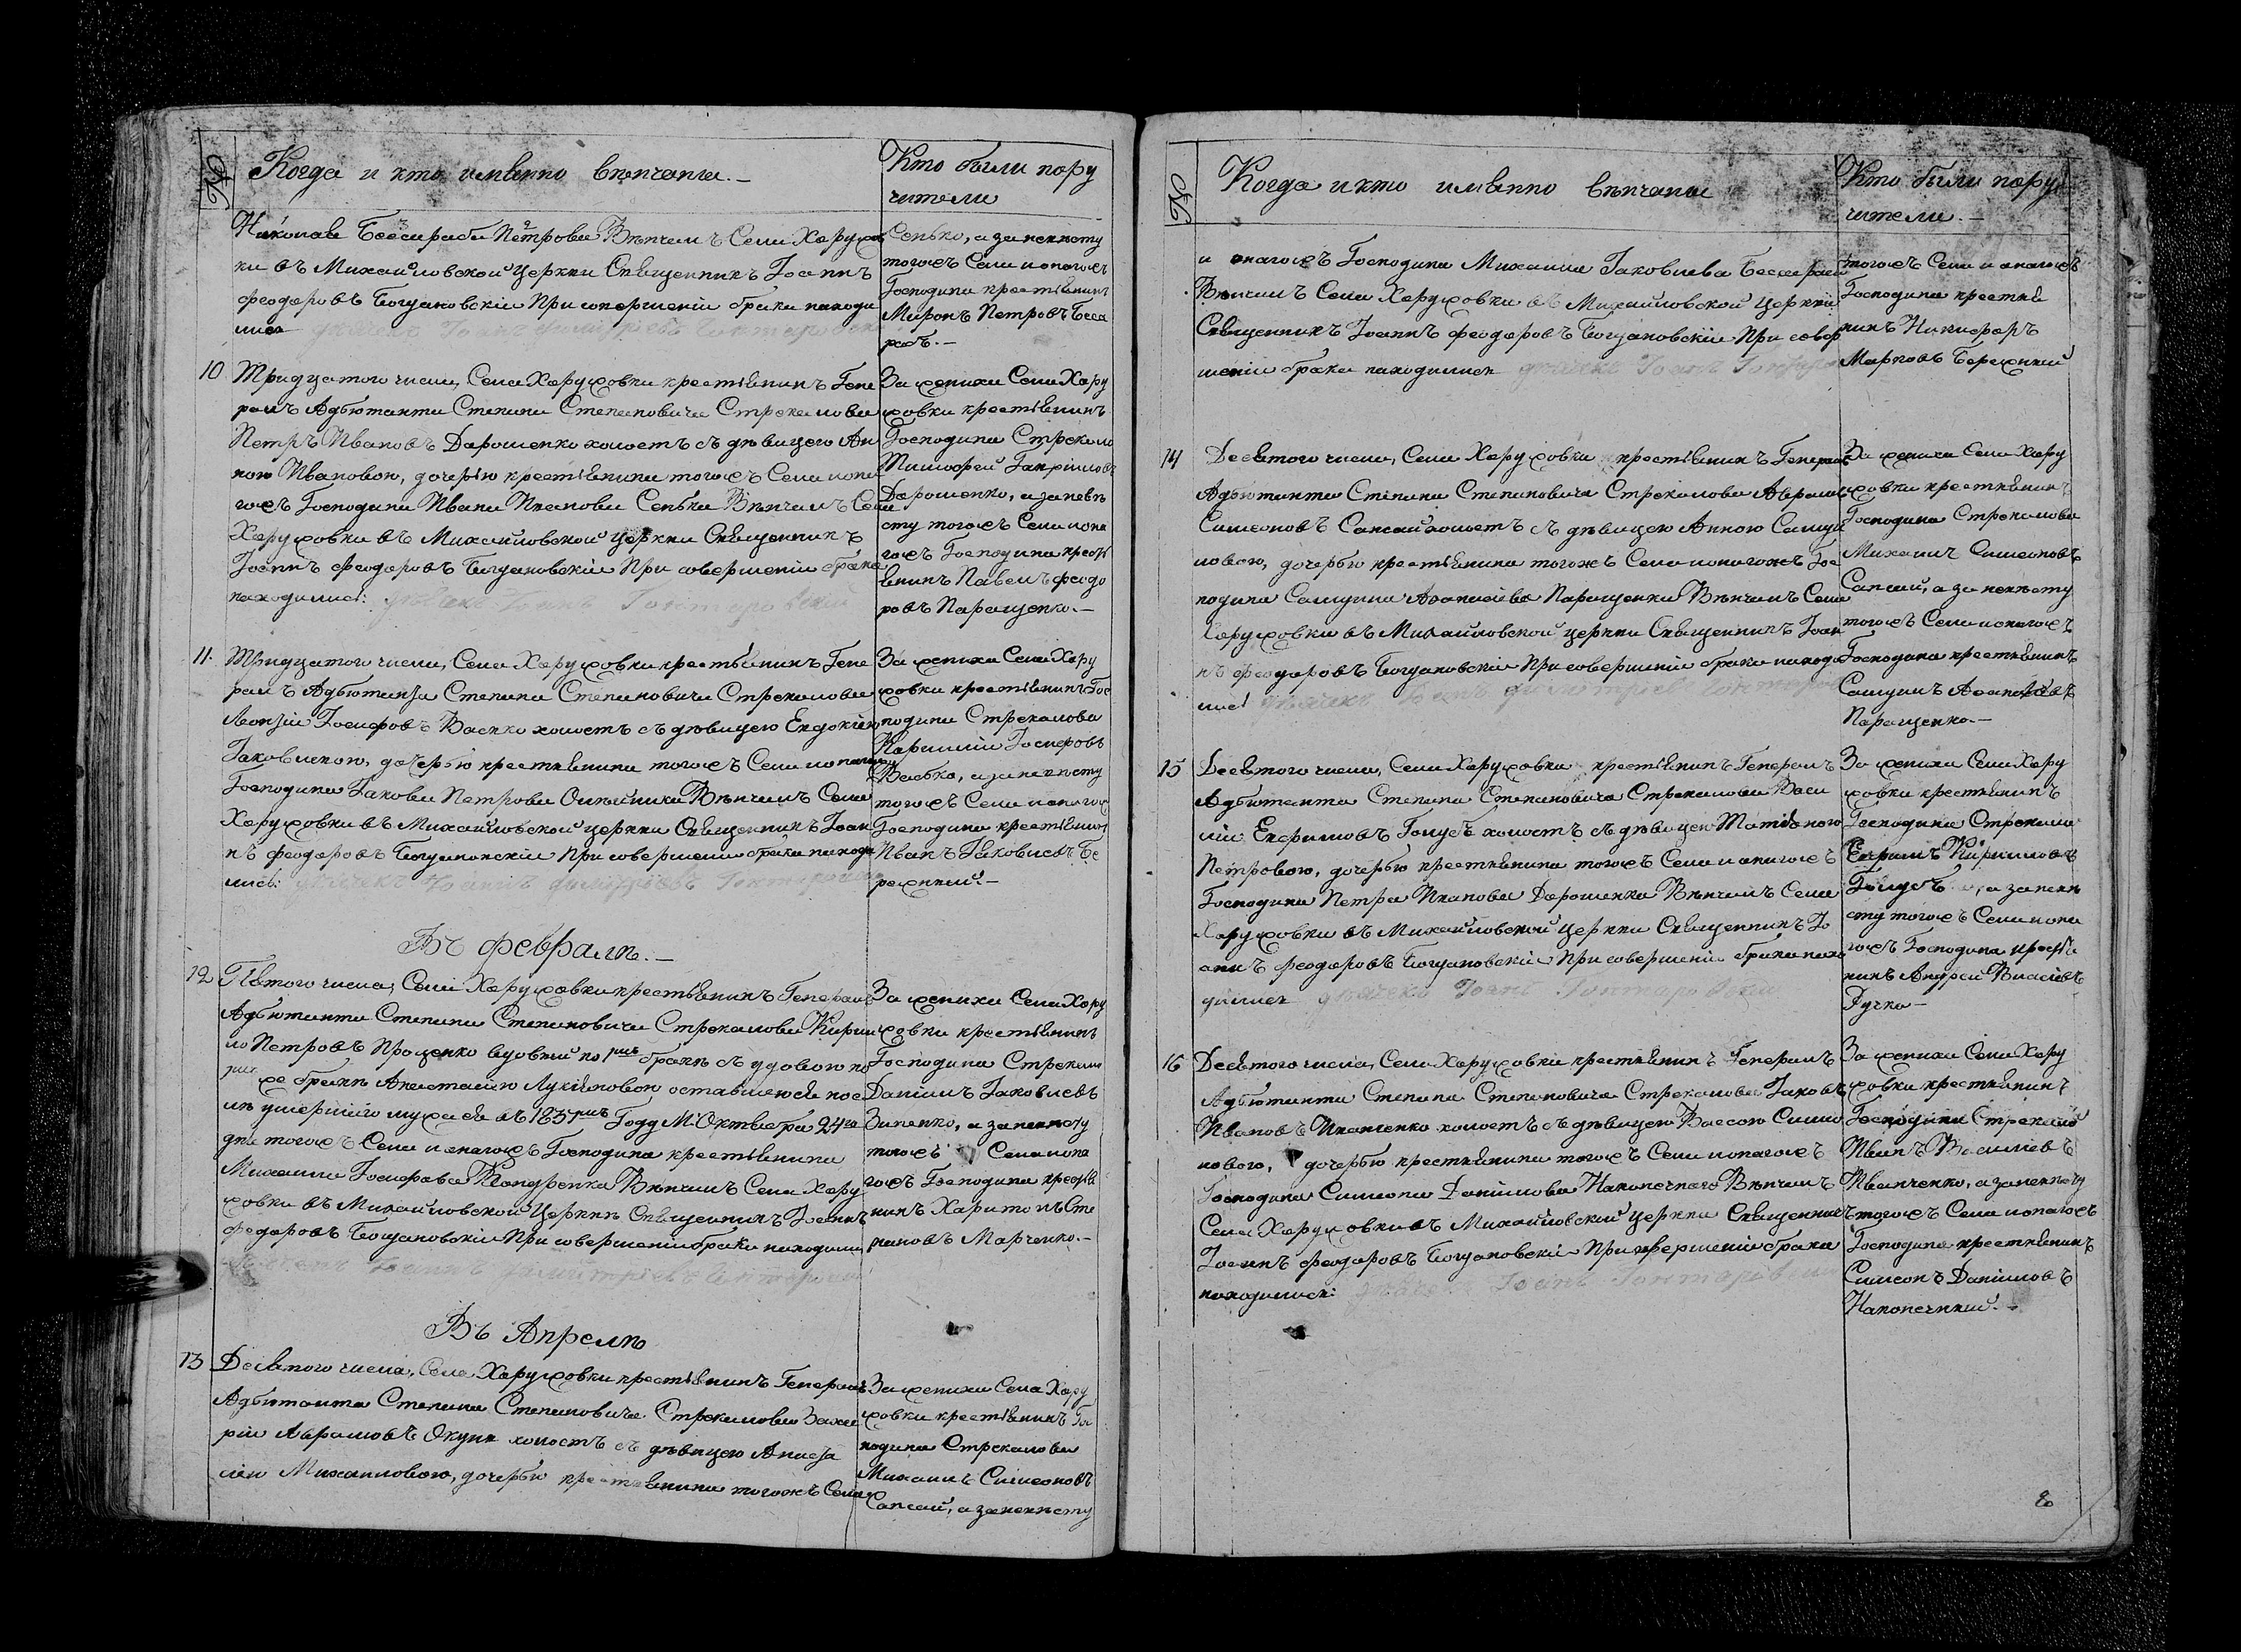 №
Когда и кто именно вѣнчаны.-
Кто были пору
чители
Николая Бессараба Петрова Вѣнчалъ Села Харжов
ки въ Михайловской Церкви Священникъ Іоаннъ
Феодоровъ Богдановскій При совершеніи брака находи
лися
Сенько, а за невѣсту
тогожъ Села и оногожъ
Господина крестянинъ
Миронъ Петровъ Бесса
рабъ.-
10
Тридцатого числа, Села Харужовки крестянинъ Гене
ралъ Адъютанта Степана Степановича Стрекалова
Петръ Ивановъ Дарошенко холостъ съ дѣвицею Ан
ною Ивановою, дочерью крестянина тогожъ Села и оно
гожъ Господина Ивана Иванова Сенька Вѣнчалъ Села
Харужовки въ Михайловской Церкви Священникъ
Іоаннъ Феодоровъ Богдановскій При совершеніи брака
находились: дьячекъ Іоаннъ Гонтаровскій
За жениха Села Хару
жовки крестянинъ
Господина Стрекало
Тимофей Гавріиловъ
Дарошенко, а за невѣ
сту тогожъ Села и оно
гожъ Господина кресть
янинъ Павелъ Феодо
ровъ Паращенко.-
11.
Тридцатого числа, Села Харужовки крестьянинъ Гене
ралъ Адъютанта Степана Степановича Стрекалова
Леонтій Іосифовъ Васько холостъ съ дѣвицею Евдокіею
Іаковлевою, дочерью крестянина тогожъ Села и оногожъ
Господина Іакова Петрова Олѣйника Вѣнчалъ Села
Харужовки въ Михайловской Церкви Священникъ Іоан
нъ Феодоровъ Богдановскій При совершеніи брака находи
лись: дьячекъ Іоаннъ Димитріевъ Гонтаровскій
За жениха Села Хару
жовки крестянинъ Гос
подина Стрекалова
Карнилій Іосифовъ
Васько, а за невѣсту
тогожъ Села и оногожъ
Господина крестянинъ
Иванъ Іаковлевъ Бе
режный.-
Въ Февралѣ.-
12
Пятого числа, Села Харужовки крестянинъ Генералъ
Адъютанта Степана Степановича Стрекалова Кирил
ло Петровъ Проценко вдовый по 1мъ бракѣ съ удовою по
1мъ же бракѣ Анастасіею Лукіяновою оставшеюся пос
лѣ умершаго мужа ея въ 1831мъ Году М: Октября 24го
дня тогожъ Села и оногожъ Господина крестянина
Михаила Іосифова Кондренка Вѣнчалъ Села Хару
жовки въ Михайловской Церквѣ Священникъ Іоаннъ
Феодоровъ Богдановскій При совершеніи брака находили
Дьячекъ Іоаннъ Димитріевъ Гонтаровскій
За жениха Села Хару
жовки крестянинъ
Господина Стрекало
Даніилъ Іаковлевъ
Зиненко, а за невѣсту
тогожъ Села и оно
гожъ Господина крестя
нинъ Харитонъ Сте
пановъ Марченко.-
Въ Апрелѣ
13
Десятого числа, Села Харужовки крестянинъ Генералъ
Адъютанта Степана Степановича Стрекалова Заха
рій Аврамовъ Окунь холостъ съ дѣвицею Анаста
сіею Михаиловою, дочерью крестянина тогожъ Села
За жениха Села Хару
жовки крестянинъ Гос
подина Стрекалова
Михаилъ Симеоновъ
Сапсай, а за невѣсту
№
Когда и кто имянно вѣнчаны
Кто были пору
чители.-
и оногожъ Господина Михаила Іаковлева Бессараба
Вѣнчалъ Села Харужовки въ Михайловской Церкви
Священникъ Іоаннъ Феодоровъ Богдановскій При совер
шеніи брака находились дьячекъ Іоаннъ Гонтаров
тогожъ Села и оногожъ
Господина крестья
нинъ Никифоръ
Марковъ Бережный
14
Десятого числа, Села Харужовки крестянинъ Генералъ
Адъютанта Степана Степановича Стрекалова Аврамъ
Симеоновъ Сапсай холостъ съ дѣвицею Анною Самуи
ловою, дочерью крестянина тогожъ Села и оногожъ Гос
подина Самуила Аѳанасіева Паращенка Вѣнчалъ Села
Харужовки въ Михайловской Церкви Священникъ Іоан
нъ Феодоровъ Богдановскій При совершеніи брака находи
лись дьячекъ Іоаннъ Димитріевъ Гонтаров
За жениха Села Хару
жовки крестянинъ
Господина Стрекалова
Михаилъ Симеоновъ
Сапсай, а за невѣсту
тогожъ Села и оногожъ
Господина крестянинъ
Самуилъ Аѳанасіевъ
Паращенко.-
15
Десятого числа, Села Харужовки крестянинъ Генералъ
Адъютанта Степана Степановича Стрекалова Васи
лій Ефримовъ Голубъ холостъ съ дѣвицею Татіяною
Петровою, дочерью крестянина тогожъ Села и оногожъ
Господина Петра Иванова Дарошенка Вѣнчалъ Села
Харужовки въ Михайловской Церкви Священникъ Іо
аннъ Феодоровъ Богдановскій При совершеніи брака нахо
дились дьячекъ Іоаннъ Гонтаровскій
За жениха Села Хару
жовки крестянинъ
Господина Стрекало
Ефримъ Кириловъ
Голубъ, а за невѣ
сту тогожъ Села и оно
гожъ Господина крестья
нинъ Андрей Власіевъ
Дучка-
16
Десятого числа, Села Харужовки крестянинъ Генералъ
Адъютанта Степана Степановича Стрекалова Іаковъ
Ивановъ Иванченко холостъ съ дѣвицею Вассою Симео
новою, дочерью крестянина тогожъ Села и оногожъ
Господина Симеона Даніилова Наконечнаго Вѣнчалъ
Села Харужовки въ Михайловской Церкви Священникъ
Іоаннъ Феодоровъ Богдановскій При совершеніи брака
находились: дьячекъ Іоаннъ Гонтаровскій
За жениха Села Хару
жовки крестянинъ
Господина Стрекало
Иванъ Василіевъ
Иванченко, а за невѣсту
тогожъ Села и оногожъ
Господина крестянинъ
Симеонъ Даніиловъ
Наконечный.-